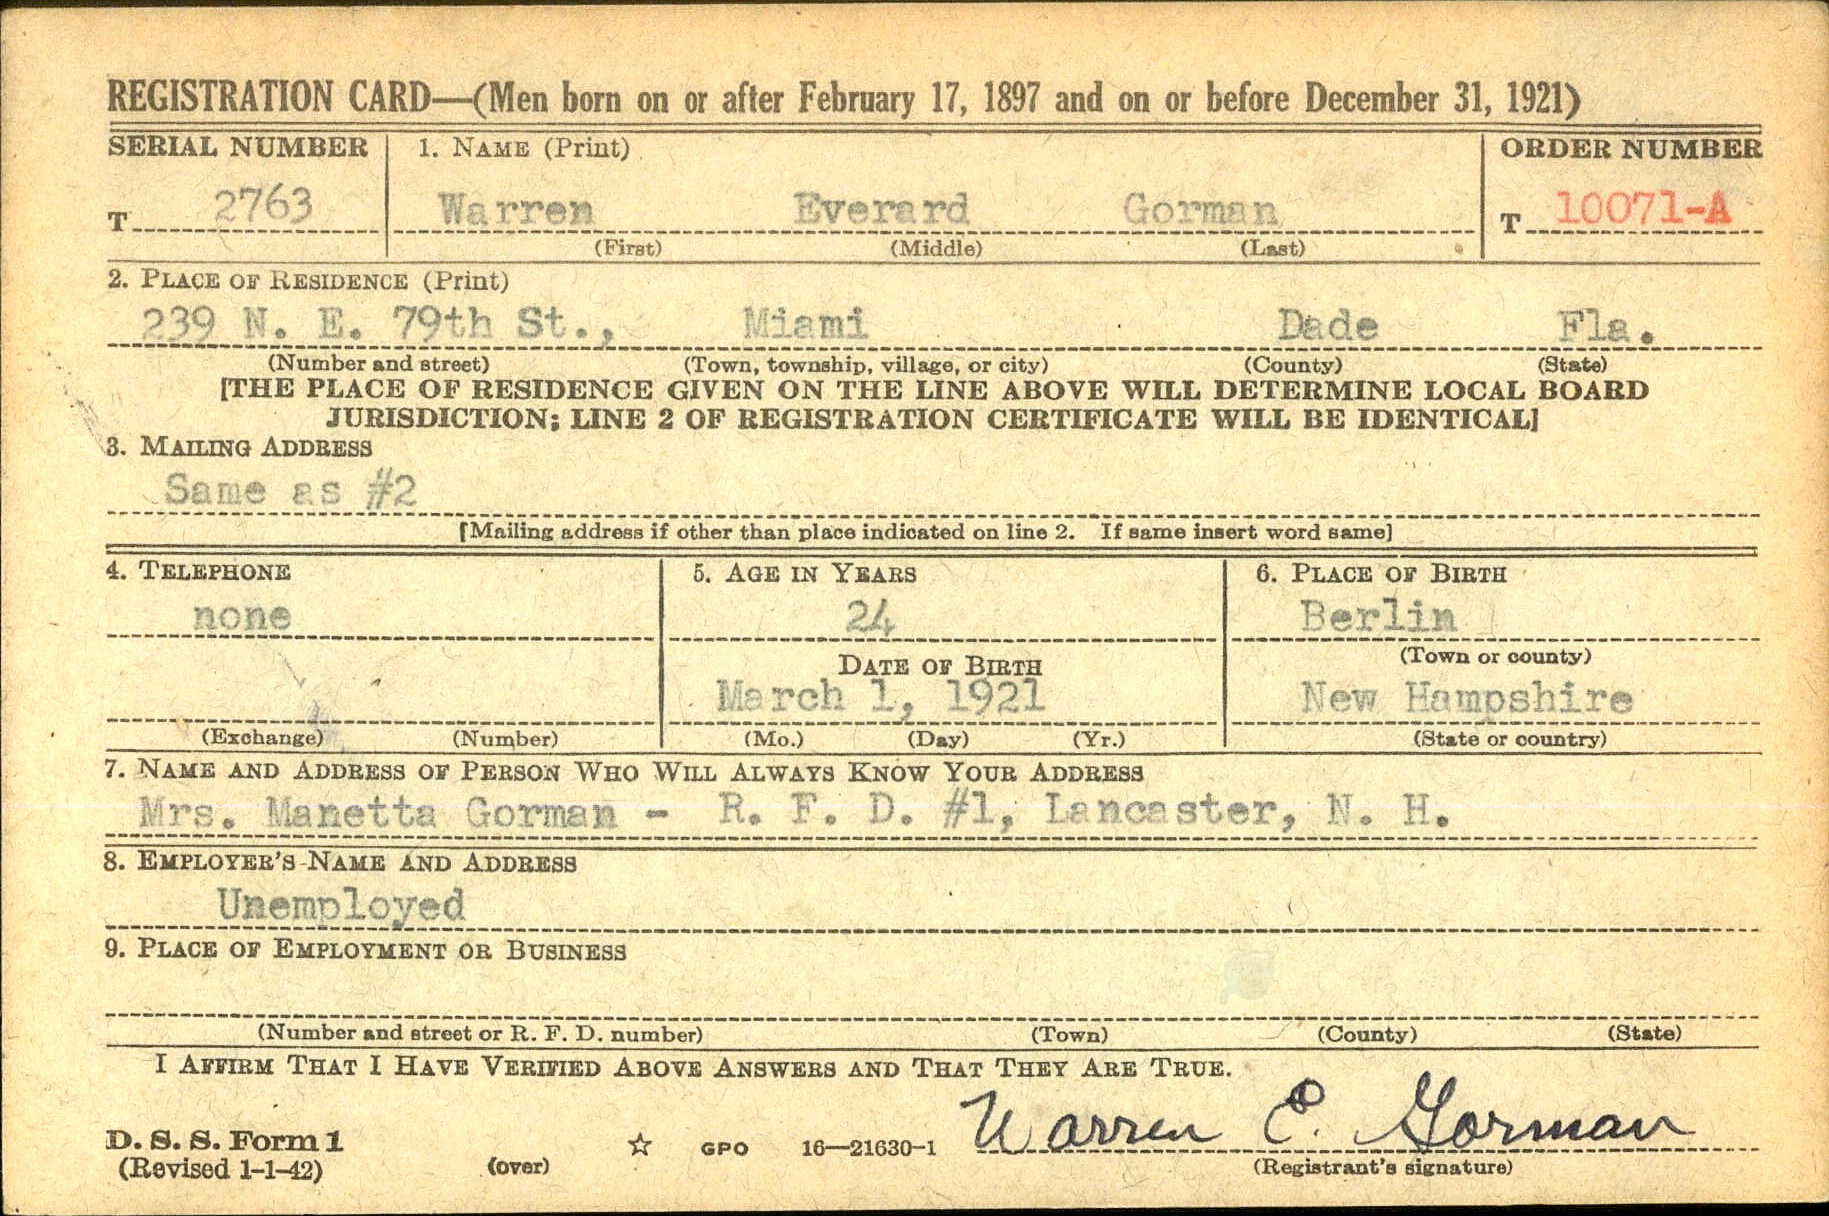 REGISTRATION CARD—(Men born on or after February 17, 1897 and on or before December 31, 1921)
SERIAL NUMBER 1. NAME (Print) ORDER NUMBER
T 2763 Warren Everard Gorman T 10071-A
(First) (Middle) (Last)
2. PLACE OF RESIDENCE (Print)
239 N. E. 79th St., Miami Dade Fla.
(Number and street) (Town, township, village, or city) (County) (State)
[THE PLACE OF RESIDENCE GIVEN ON THE LINE ABOVE WILL DETERMINE LOCAL BOARD
JURISDICTION; LINE 2 OF REGISTRATION CERTIFICATE WILL BE IDENTICAL]
3. MAILING ADDRESS
Same as #2
[Mailing address if other than place indicated on line 2. If same insert word same]
4. TELEPHONE 5. AGE IN YEARS 6. PLACE OF BIRTH
none 24 Berlin
DATE OF BIRTH (Town or county)
March 1, 1921 New Hampshire
(Exchange) (Number) (Mo.) (Day) (Yr.) (State or country)
7. NAME AND ADDRESS OF PERSON WHO WILL ALWAYS KNOW YOUR ADDRESS
Mrs. Manetta Gorman - R. F. D. #1, Lancaster, N. H.
8. EMPLOYER'S NAME AND ADDRESS
Unemployed
9. PLACE OF EMPLOYMENT OR BUSINESS
(Number and street or R. F. D. number) (Town) (County) (State)
I AFFIRM THAT I HAVE VERIFIED ABOVE ANSWERS AND THAT THEY ARE TRUE.
D. S. S. Form 1 ☆ GPO 16—21630-1 Warren E. Gorman
(Revised 1-1-42) (over) (Registrant's signature)